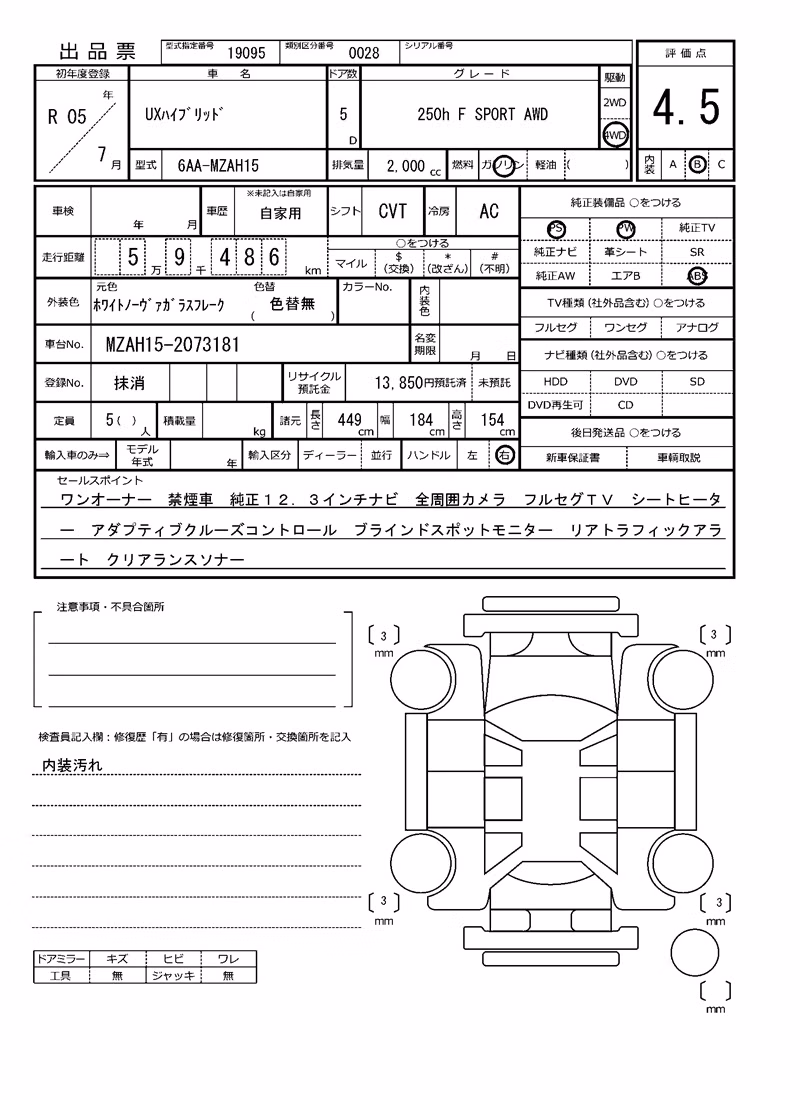 出品票 型式指定番号 19095 類別区分番号 0028 シリアル番号
評価点
4.5
内装 A B C
初年度登録 車名 ドア数 グレード 駆動
R 05 年 7 月 UXハイブリッド 5 D 250h F SPORT AWD 2WD 4WD
型式 6AA-MZAH15 排気量 2,000 cc 燃料 ガソリン 軽油 ( )
車検 年 月 車歴 ※未記入は自家用 自家用 シフト CVT 冷房 AC
走行距離 5 万 9 千 4 8 6 km ○をつける
マイル $(交換) *(改ざん) #(不明)
外装色 元色 ホワイトノーヴァガラスフレーク 色替 ( 色替無 ) カラーNo. 内装色
車台No. MZAH15-2073181 名変期限 月 日
登録No. 抹消 リサイクル預託金 13,850円預託済 未預託
定員 5 ( ) 人 積載量 kg 諸元 長さ 449 cm 幅 184 cm 高さ 154 cm
輸入車のみ⇒ モデル年式 年 輸入区分 ディーラー 並行 ハンドル 左 右
純正装備品 ○をつける
PS PW 純正TV
純正ナビ 革シート SR
純正AW エアB ABS
TV種類(社外品含む)○をつける
フルセグ ワンセグ アナログ
ナビ種類(社外品含む)○をつける
HDD DVD SD
DVD再生可 CD
後日発送品 ○をつける
新車保証書 車輌取説
セールスポイント
ワンオーナー 禁煙車 純正12.3インチナビ 全周囲カメラ フルセグTV シートヒータ
ー アダプティブクルーズコントロール ブラインドスポットモニター リアトラフィックアラ
ート クリアランスソナー
注意事項・不具合箇所
検査員記入欄:修復歴「有」の場合は修復箇所・交換箇所を記入
内装汚れ
ドアミラー キズ ヒビ ワレ
工具 無 ジャッキ 無
3 mm
3 mm
3 mm
3 mm
mm